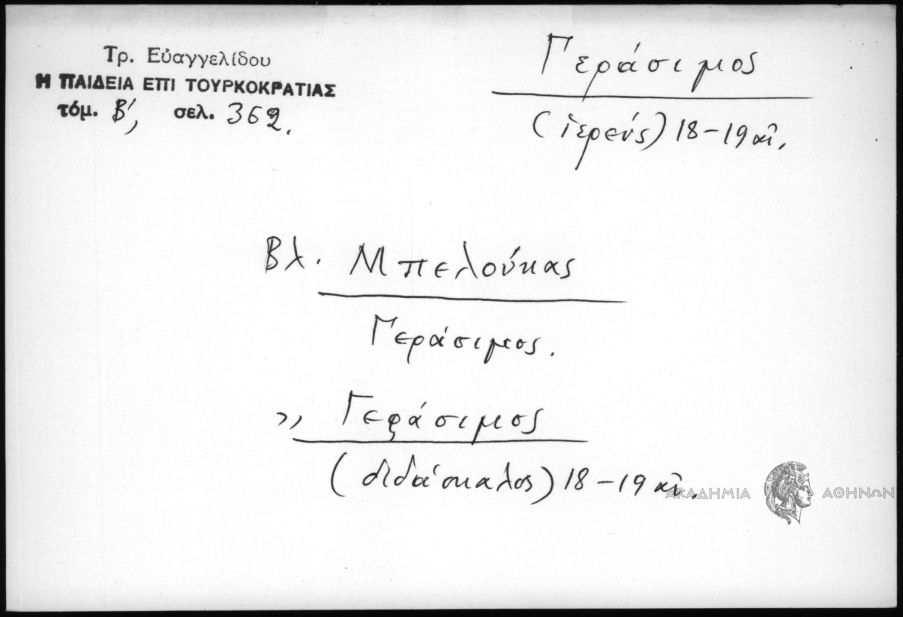 Τρ. Εὐαγγελίδου
Η ΠΑΙΔΕΙΑ ΕΠΙ ΤΟΥΡΚΟΚΡΑΤΙΑΣ
τόμ. Β', σελ. 362.
Γεράσιμος
(ἱερεύς) 18-19 αἰ.
Βλ. Μπελούκας
Γεράσιμος.
〃 Γεράσιμος
(διδάσκαλος) 18-19 αἰ.
ΑΚΑΔΗΜΙΑ ΑΘΗΝΩΝ